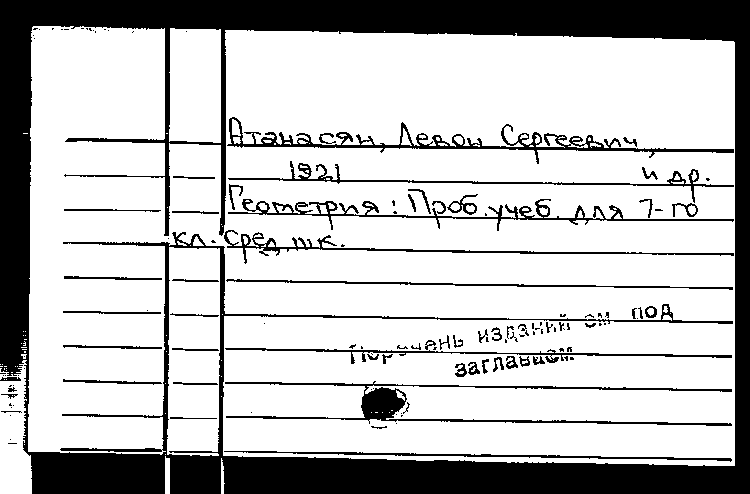 Атанасян, Левон Сергеевич,
1921 и др.
Геометрия : Проб. учеб. для 7-го
кл. сред. шк.
Перечень изданий см под
заглавием